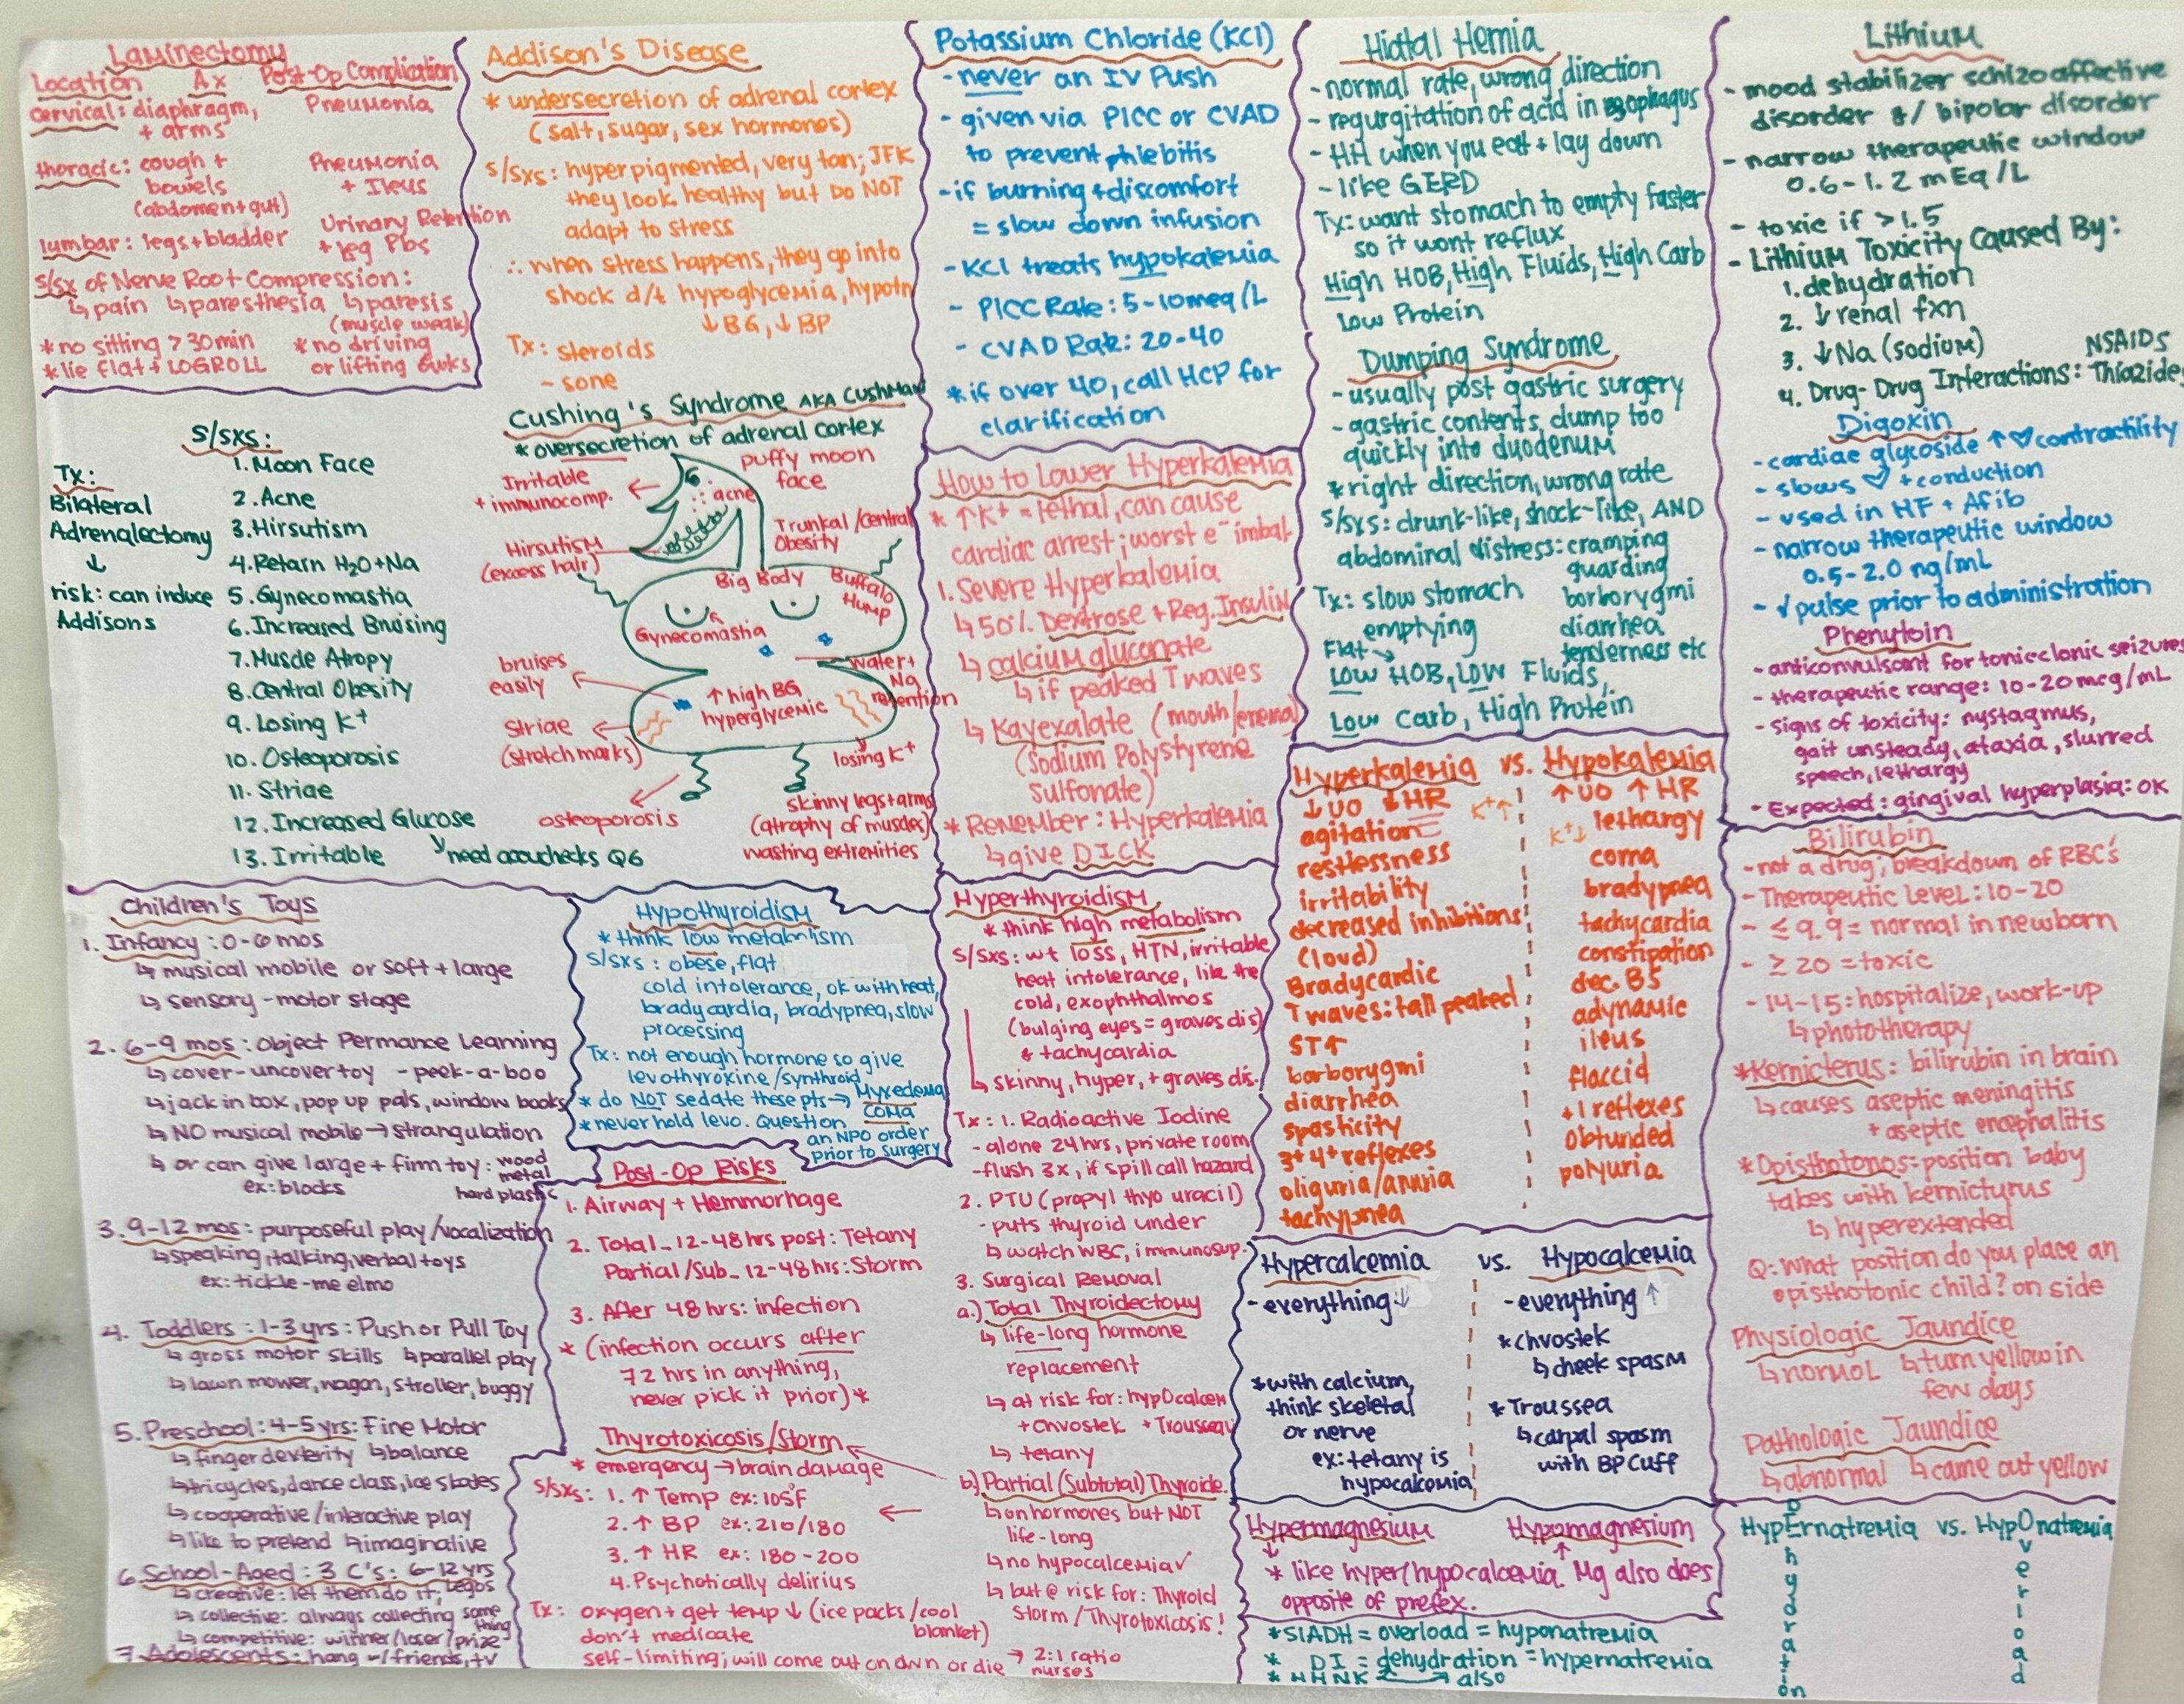 Laminectomy
Location Ax Post-Op Complication
cervical: diaphragm, + arms Pneumonia
thoracic: cough + bowels (abdomen+gut) Pneumonia + Ileus
lumbar: legs+bladder Urinary Retention + leg Pbs
s/sx of Nerve Root Compression:
↳ pain ↳ paresthesia ↳ paresis (muscle weak)
*no sitting >30min *no driving
*lie flat + LOGROLL or lifting 6wks
Addison's Disease
* undersecretion of adrenal cortex
(salt, sugar, sex hormones)
s/sxs: hyperpigmented, very tan; JFK
they look healthy but DO NOT
adapt to stress
∴ when stress happens, they go into
shock d/t hypoglycemia, hypotn
↓BG, ↓BP
Tx: steroids
- sone
Cushing's Syndrome AKA CUSHMAN
* oversecretion of adrenal cortex
Irritable + immunocomp.
acne
puffy moon face
Hirsutism (excess hair)
Trunkal/Central Obesity
Big Body
Buffalo Hump
Gynecomastia
bruises easily
water + Na retention
↑ high BG hyperglycemic
Striae (stretch marks)
losing K+
osteoporosis
skinny legs+arms
(atrophy of muscles)
wasting extremities
s/sxs:
1. Moon Face
2. Acne
3. Hirsutism
4. Retain H2O+Na
5. Gynecomastia
6. Increased Bruising
7. Muscle Atropy
8. Central Obesity
9. Losing K+
10. Osteoporosis
11. Striae
12. Increased Glucose
↘ need accuchecks Q6
13. Irritable
Tx:
Bilateral
Adrenalectomy
↓
risk: can induce
Addisons
Potassium Chloride (KCl)
- never an IV Push
- given via PICC or CVAD
to prevent phlebitis
- if burning + discomfort
= slow down infusion
- KCl treats hypokalemia
- PICC Rate: 5-10meq/L
- CVAD Rate: 20-40
*if over 40, call HCP for
clarification
How to Lower Hyperkalemia
* ↑K+ = lethal, can cause
cardiac arrest; worst e- imbal.
1. Severe Hyperkalemia
↳ 50% Dextrose + Reg. Insulin
↳ calcium gluconate
↳ if peaked T waves
↳ Kayexalate (mouth/enema)
(Sodium Polystyrene
sulfonate)
* Remember: Hyperkalemia
↳ give DICK
Hiatal Hernia
- normal rate, wrong direction
- regurgitation of acid in esophagus
- HH when you eat + lay down
- like GERD
Tx: want stomach to empty faster
so it wont reflux
High HOB, High Fluids, High Carb
Low Protein
Dumping Syndrome
- usually post gastric surgery
- gastric contents, dump too
quickly into duodenum
*right direction, wrong rate
s/sxs: drunk-like, shock-like, AND
abdominal distress: cramping
guarding
borborygmi
diarrhea
tenderness etc
Tx: slow stomach
emptying
Flat→
LOW HOB, LOW Fluids,
Low Carb, High Protein
Lithium
- mood stabilizer schizoaffective
disorder &/ bipolar disorder
- narrow therapeutic window
0.6-1.2 mEq/L
- toxic if >1.5
- Lithium Toxicity Caused By:
1. dehydration
2. ↓ renal fxn
3. ↓Na (sodium)
4. Drug-Drug Interactions: NSAIDS Thiazides
Digoxin
- cardiac glycoside ↑ ♡ contractility
- slows ♡ + conduction
- used in HF + Afib
- narrow therapeutic window
0.5-2.0 ng/mL
- √ pulse prior to administration
Phenytoin
- anticonvulsant for tonic clonic seizures
- therapeutic range: 10-20 mcg/mL
- signs of toxicity: nystagmus,
gait unsteady, ataxia, slurred
speech, lethargy
- Expected: gingival hyperplasia: OK
Bilirubin
- not a drug; breakdown of RBC's
- Therapeutic level: 10-20
- ≤ 9.9 = normal in newborn
- ≥ 20 = toxic
- 14-15: hospitalize, work-up
↳ phototherapy
*Kernicterus: bilirubin in brain
↳ causes aseptic meningitis
+ aseptic encephalitis
*Opisthotonos: position baby
takes with kernicturus
↳ hyperextended
Q: What position do you place an
opisthotonic child? on side
Physiologic Jaundice
↳ normal ↳ turn yellow in
few days
Pathologic Jaundice
↳ abnormal ↳ came out yellow
Hyperkalemia vs. Hypokalemia
↓UO ↓HR K+↑
agitation
restlessness
irritability
decreased inhibitions
(loud)
Bradycardic
T waves: tall peaked
ST↑
borborygmi
diarrhea
spasticity
3+ 4+ reflexes
oliguria/anuria
tachypnea
↑UO ↑HR
K+↓ lethargy
coma
bradypnea
tachycardia
constipation
dec. BS
adynamic
ileus
flaccid
+1 reflexes
obtunded
polyuria
Hypercalcemia vs. Hypocalcemia
- everything↓
*with calcium,
think skeletal
or nerve
ex: tetany is
hypocalcemia
- everything ↑
*chvostek
↳ cheek spasm
* Troussea
↳ carpal spasm
with BP Cuff
Hypermagnesium Hypomagnesium
↓ ↑
* like hyper/hypocalcemia. Mg also does
opposite of prefex.
*SIADH = overload = hyponatremia
* DI = dehydration = hypernatremia
* HHNK also
HypErnatremia vs. HypOnatremia
Dhydration
Overload
Children's Toys
1. Infancy: 0-6 mos
↳ musical mobile or soft + large
↳ sensory-motor stage
2. 6-9 mos: Object Permance Learning
↳ cover-uncover toy - peek-a-boo
↳ jack in box, pop up pals, window books
↳ NO musical mobile → strangulation
↳ or can give large + firm toy: wood
metal
hard plastic
ex: blocks
3. 9-12 mos: purposeful play/vocalization
↳ speaking, talking, verbal toys
ex: tickle-me elmo
4. Toddlers: 1-3 yrs: Push or Pull Toy
↳ gross motor skills ↳ parallel play
↳ lawn mower, wagon, stroller, buggy
5. Preschool: 4-5 yrs: Fine Motor
↳ finger dexterity ↳ balance
↳ tricycles, dance class, ice skates
↳ cooperative/interactive play
↳ like to pretend ↳ imaginative
6. School-Aged: 3 C's: 6-12 yrs
↳ creative: let them do it, Legos
↳ collective: always collecting some thing
↳ competitive: winner/loser/prize
7. Adolescents: hang w/friends, tv
Hypothyroidism
* think low metabolism
s/sxs: obese, flat
cold intolerance, ok with heat,
bradycardia, bradypnea, slow
processing
Tx: not enough hormone so give
levothyroxine/synthroid
* do NOT sedate these pts → Myxedema
COMA
*never hold levo. Question
an NPO order
prior to surgery
Post-Op Risks
1. Airway + Hemmorhage
2. Total_12-48 hrs post: Tetany
Partial/Sub_12-48 hrs: Storm
3. After 48 hrs: infection
* (infection occurs after
72 hrs in anything,
never pick it prior)*
Thyrotoxicosis/Storm
* emergency → brain damage
s/sxs: 1. ↑ Temp ex: 105°F
2. ↑ BP ex: 210/180
3. ↑ HR ex: 180-200
4. Psychotically delirius
Tx: oxygen + get temp ↓ (ice packs/cool
blanket)
don't medicate
self-limiting; will come out on own or die → 2:1 ratio
nurses
Hyperthyroidism
* think high metabolism
s/sxs: wt loss, HTN, irritable
heat intolerance, like the
cold, exophthalmos
(bulging eyes = graves dis)
& tachycardia
↳ skinny, hyper, + graves dis.
Tx: 1. Radioactive Iodine
- alone 24hrs, private room
- flush 3x, if spill call hazard
2. PTU (propyl thyo uracil)
- puts thyroid under
↳ watch WBC, immunosup.
3. Surgical Removal
a.) Total Thyroidectomy
↳ life-long hormone
replacement
↳ at risk for: hypOcalcem
+ chvostek + Trousseau
↳ tetany
b.) Partial (Subtotal) Thyroide.
↳ on hormones but NOT
life-long
↳ no hypocalcemia✓
↳ but @ risk for: Thyroid
Storm/Thyrotoxicosis!